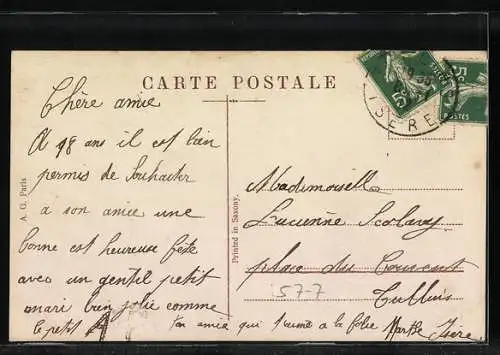 CARTE POSTALE
Chère amie
A 18 ans il est bien
permis de souhaiter
à son amie une
bonne est heureuse fête
avec un gentil petit
mari bien jolie comme
le petit
ton amie qui t'aime a la folie Marthe
Mademoiselle
Lucienne
place du Couvent
Tullins
Isère
577
A. G. Paris
Printed in Saxony.
ISERE
5c
POSTES